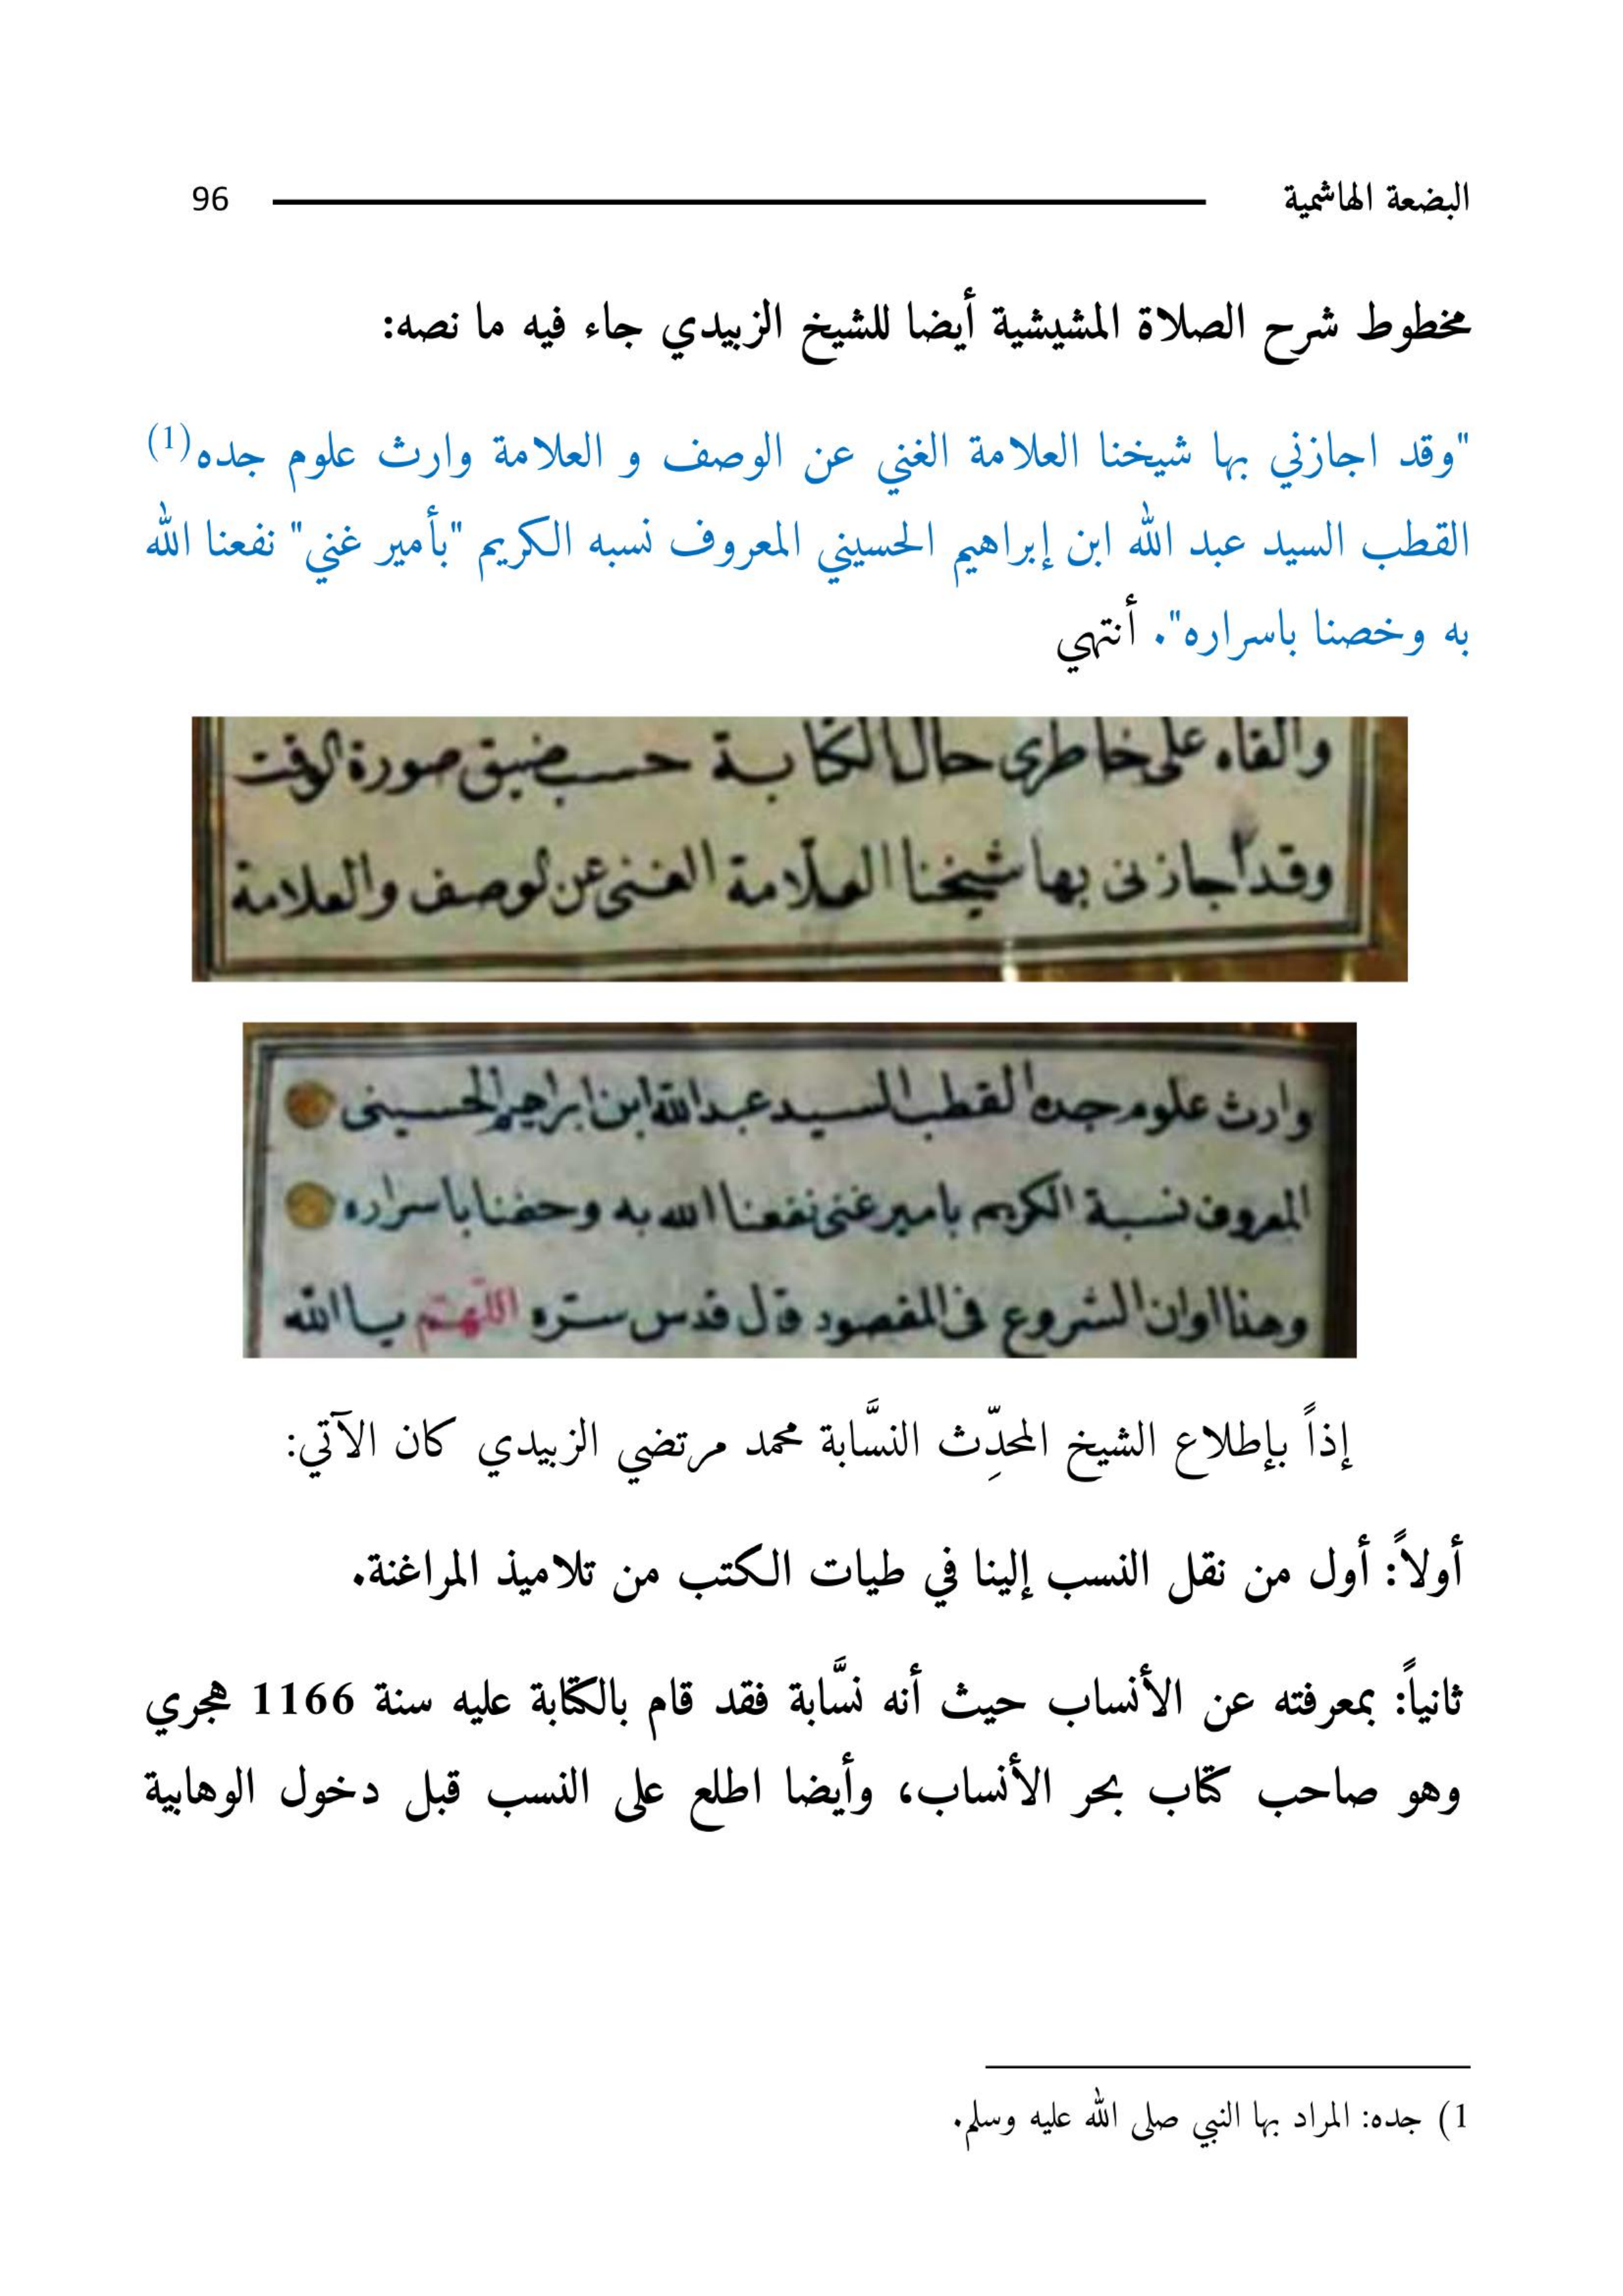 البضعة الهاشمية 96
مخطوط شرح الصلاة المشيشية أيضا للشيخ الزبيدي جاء فيه ما نصه:
"وقد اجازني بها شيخنا العلامة الغني عن الوصف و العلامة وارث علوم جده(1)
القطب السيد عبد الله ابن إبراهيم الحسيني المعروف نسبه الكريم "بأمير غني" نفعنا الله
به وخصنا باسراره". أنتهي
والقاه على خاطرى حال الكتابة حسب ضيق صورة الوقت
وقد اجازنى بها شيخنا العلامة الغنى عن لوصف والعلامة
وارث علوم جده القطب السيد عبد الله ابن ابراهيم الحسينى
المعروف نسبة الكريم بامير غنى نفعنا الله به وحضنا باسراره
وهذا اوان الشروع فى المقصود قال قدس سره اللهم يا الله
إذاً بإطلاع الشيخ المحدِّث النسَّابة محمد مرتضي الزبيدي كان الآتي:
أولاً: أول من نقل النسب إلينا في طيات الكتب من تلاميذ المراغنة.
ثانياً: بمعرفته عن الأنساب حيث أنه نسَّابة فقد قام بالكتابة عليه سنة 1166 هجري
وهو صاحب كتاب بحر الأنساب، وأيضا اطلع على النسب قبل دخول الوهابية
1) جده: المراد بها النبي صلى الله عليه وسلم.